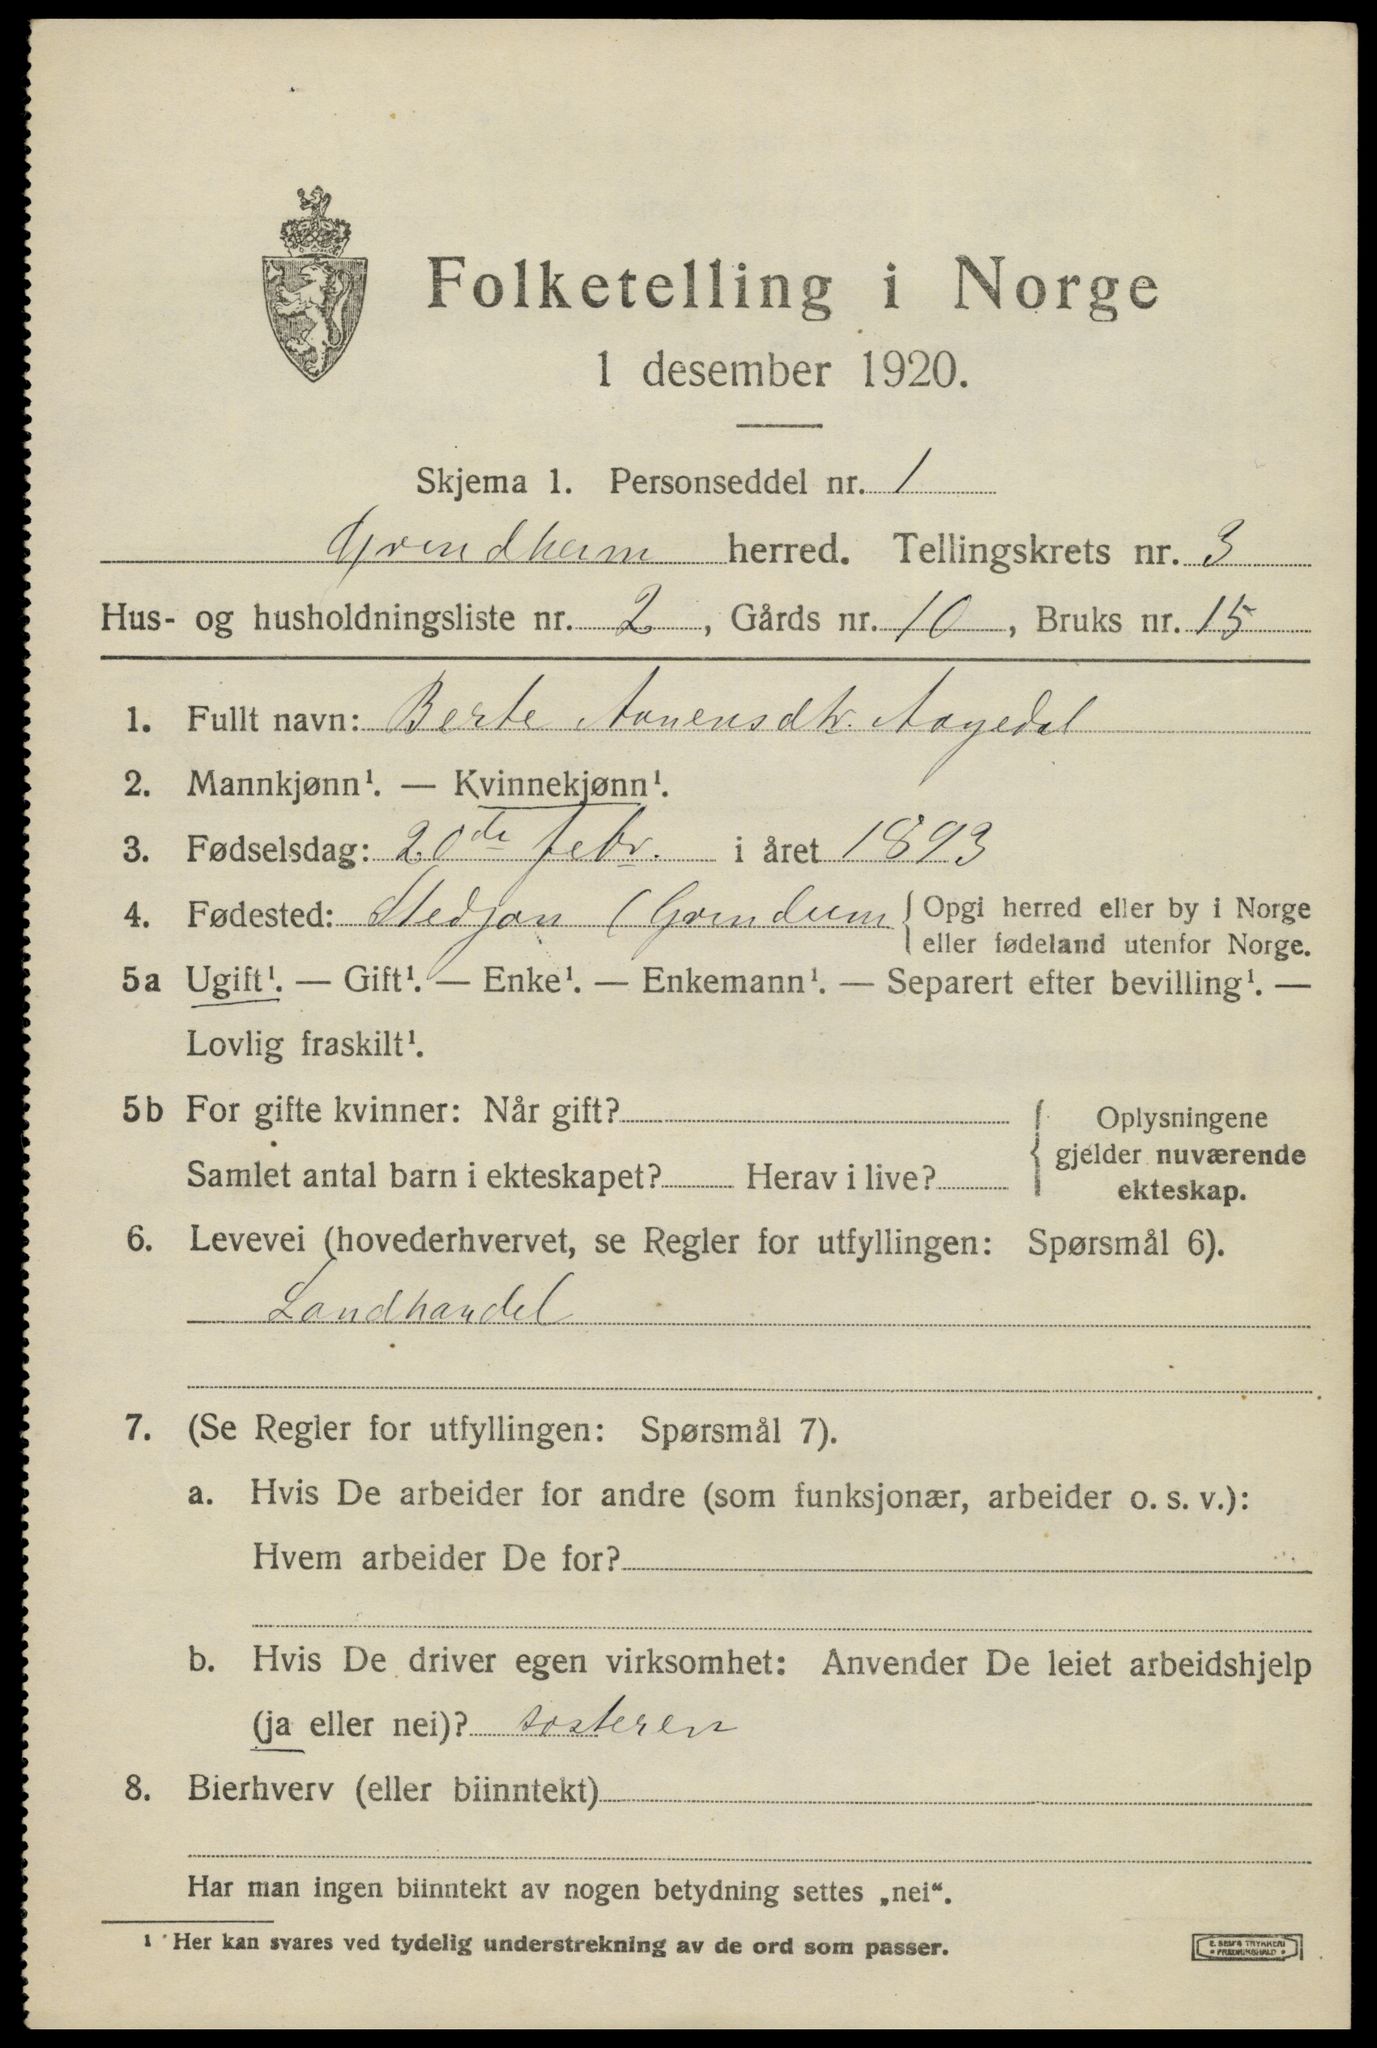 Folketelling i Norge
1 desember 1920.
Skjema 1. Personseddel nr. 1
Grindheim herred. Tellingskrets nr. 3
Hus- og husholdningsliste nr. 2, Gårds nr. 10, Bruks nr. 15
1. Fullt navn: Berte Aanensdtr. Aagedal
2. Mannkjønn¹. — Kvinnekjønn¹.
3. Fødselsdag: 20de febr. i året 1893
4. Fødested: (Grindum { Opgi herred eller by i Norge
eller fødeland utenfor Norge.
5a Ugift¹. — Gift¹. — Enke¹. — Enkemann¹. — Separert efter bevilling¹. —
Lovlig fraskilt¹.
5b For gifte kvinner: Når gift?
Samlet antal barn i ekteskapet? Herav i live?
{ Oplysningene
gjelder nuværende
ekteskap.
6. Levevei (hovederhvervet, se Regler for utfyllingen: Spørsmål 6).
Landhandel
7. (Se Regler for utfyllingen: Spørsmål 7).
a. Hvis De arbeider for andre (som funksjonær, arbeider o. s. v.):
Hvem arbeider De for?
b. Hvis De driver egen virksomhet: Anvender De leiet arbeidshjelp
(ja eller nei)? søsteren
8. Bierhverv (eller biinntekt)
Har man ingen biinntekt av nogen betydning settes „nei“.
¹ Her kan svares ved tydelig understrekning av de ord som passer.
E. SEM'S TRYKKERI
• FREDRIKSHALD •